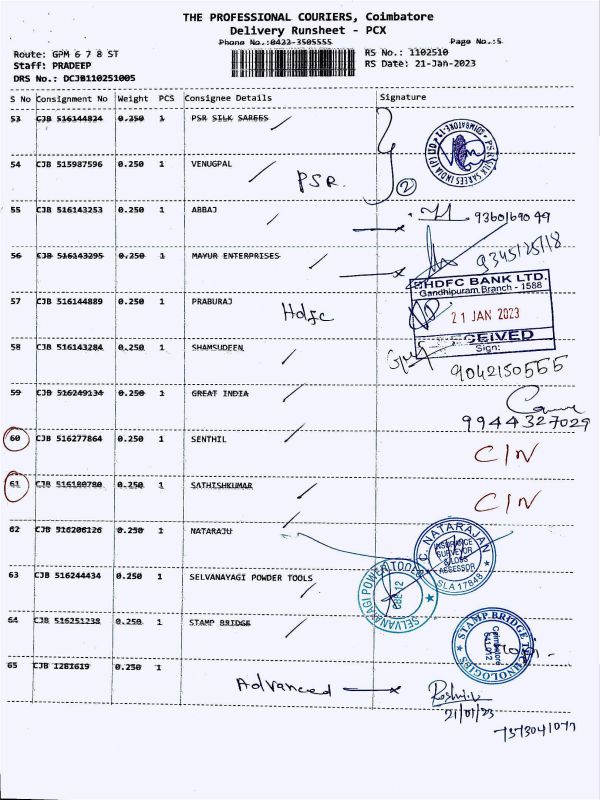 THE PROFESSIONAL COURIERS, Coimbatore
Delivery Runsheet - PCX
Phone No.:0422-3505555 Page No.:5
Route: GPM 6 7 8 ST RS No.: 1102510
Staff: PRADEEP RS Date: 21-Jan-2023
DRS No.: DCJB110251005
S No Consignment No Weight PCS Consignee Details Signature
53 CJB 516144824 0.250 1 PSR SILK SAREES
54 CJB 515987596 0.250 1 VENUGPAL
PSR. 2
55 CJB 516143253 0.250 1 ABBAJ
9360169049
56 CJB 516143295 0.250 1 MAYUR ENTERPRISES
9345125718
HDFC BANK LTD.
Gandhipuram Branch - 1588
57 CJB 516144889 0.250 1 PRABURAJ
Hdfc
21 JAN 2023
RECEIVED
Sign:
58 CJB 516143284 0.250 1 SHAMSUDEEN
9042150555
59 CJB 516249134 0.250 1 GREAT INDIA
9944327029
60 CJB 516277864 0.250 1 SENTHIL
C/N
61 CJB 516180780 0.250 1 SATHISHKUMAR
C/N
62 CJB 516206126 0.250 1 NATARAJU
C. NATARAJAN
INSURANCE
SURVEYOR
& LOSS
ASSESSOR
SLA 17848
63 CJB 516244434 0.250 1 SELVANAYAGI POWDER TOOLS
SELVANAYAGI POWER TOOLS
64 CJB 516251238 0.250 1 STAMP BRIDGE
STAMP BRIDGE TECHNOLOGIES
Coimbatore
65 CJB 1281619 0.250 1
Advanced
21/01/23